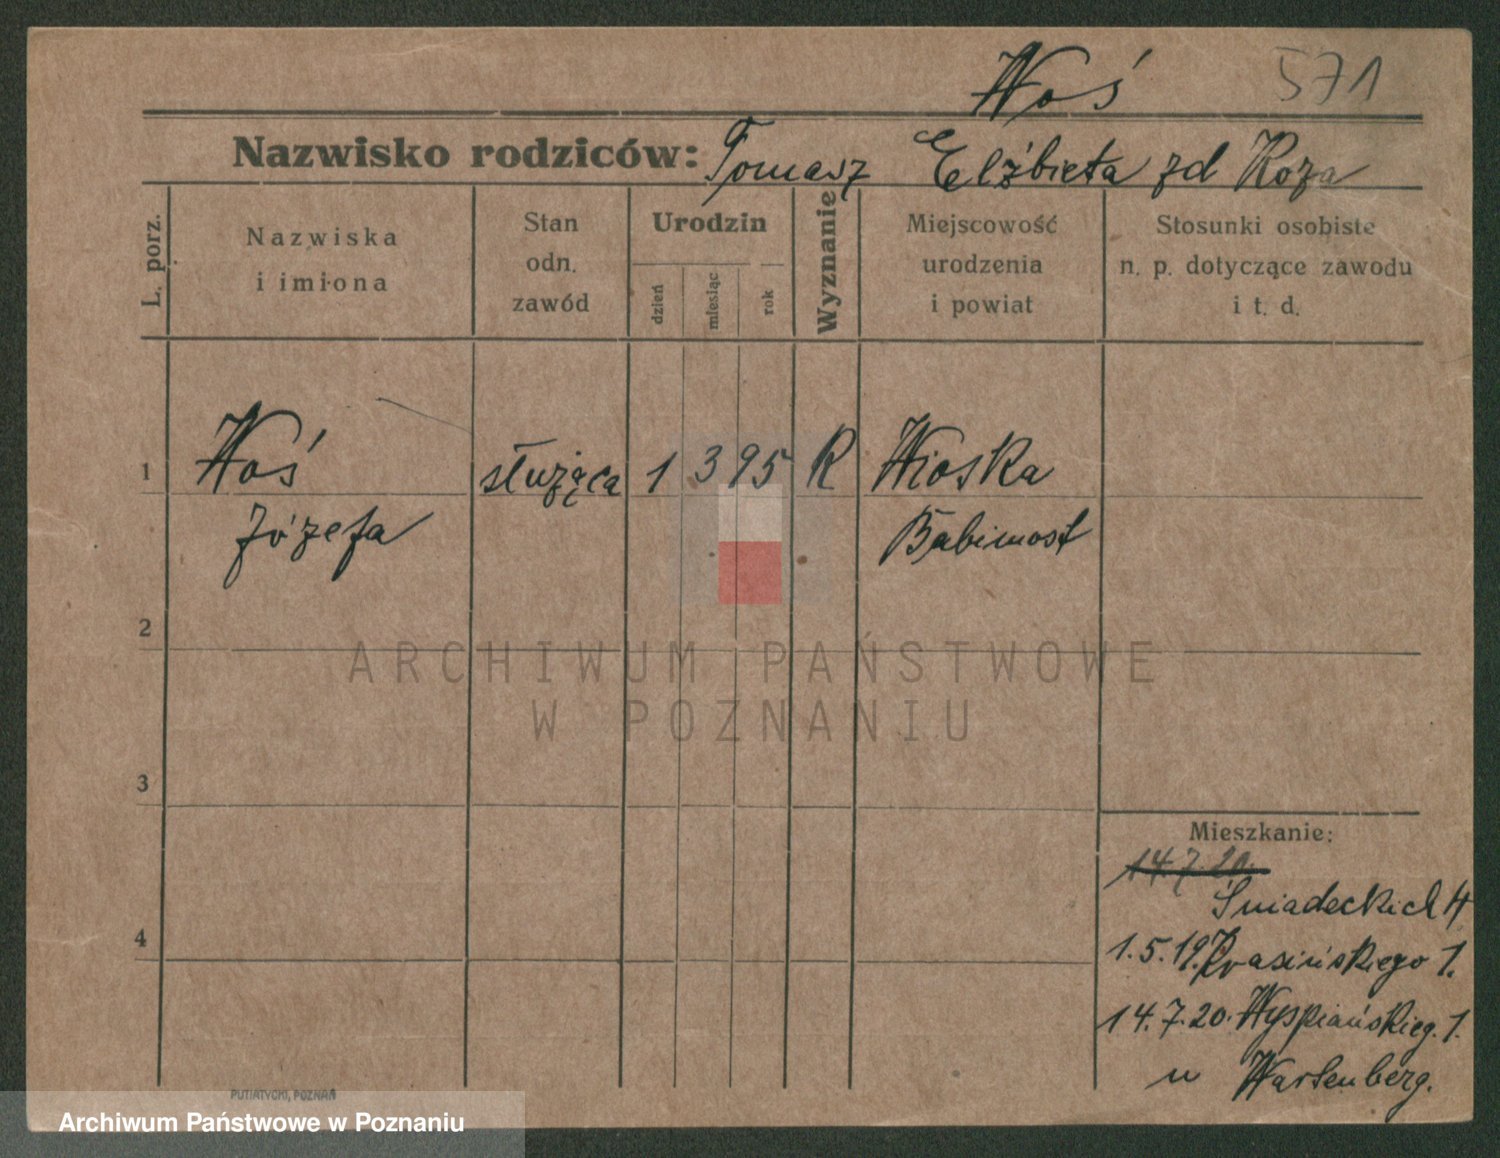 Woś 571
Nazwisko rodziców: Tomasz Elżbieta zd Koza
L. porz.
Nazwiska
i imiona
Stan
odn.
zawód
Urodzin
dzień
miesiąc
rok
Wyznanie
Miejscowość
urodzenia
i powiat
Stosunki osobiste
n. p. dotyczące zawodu
i t. d.
1 Woś służąca 1 3 95 R Wioska
Józefa Babimost
2
ARCHIWUM PAŃSTWOWE
W POZNANIU
3
Mieszkanie:
14.7.20.
Śniadeckich
4
1.5.19. Krasińskiego 1.
14.7.20. Wyspiańskieg. 1.
u Wartenberg.
PUTIATYCKI, POZNAŃ
Archiwum Państwowe w Poznaniu